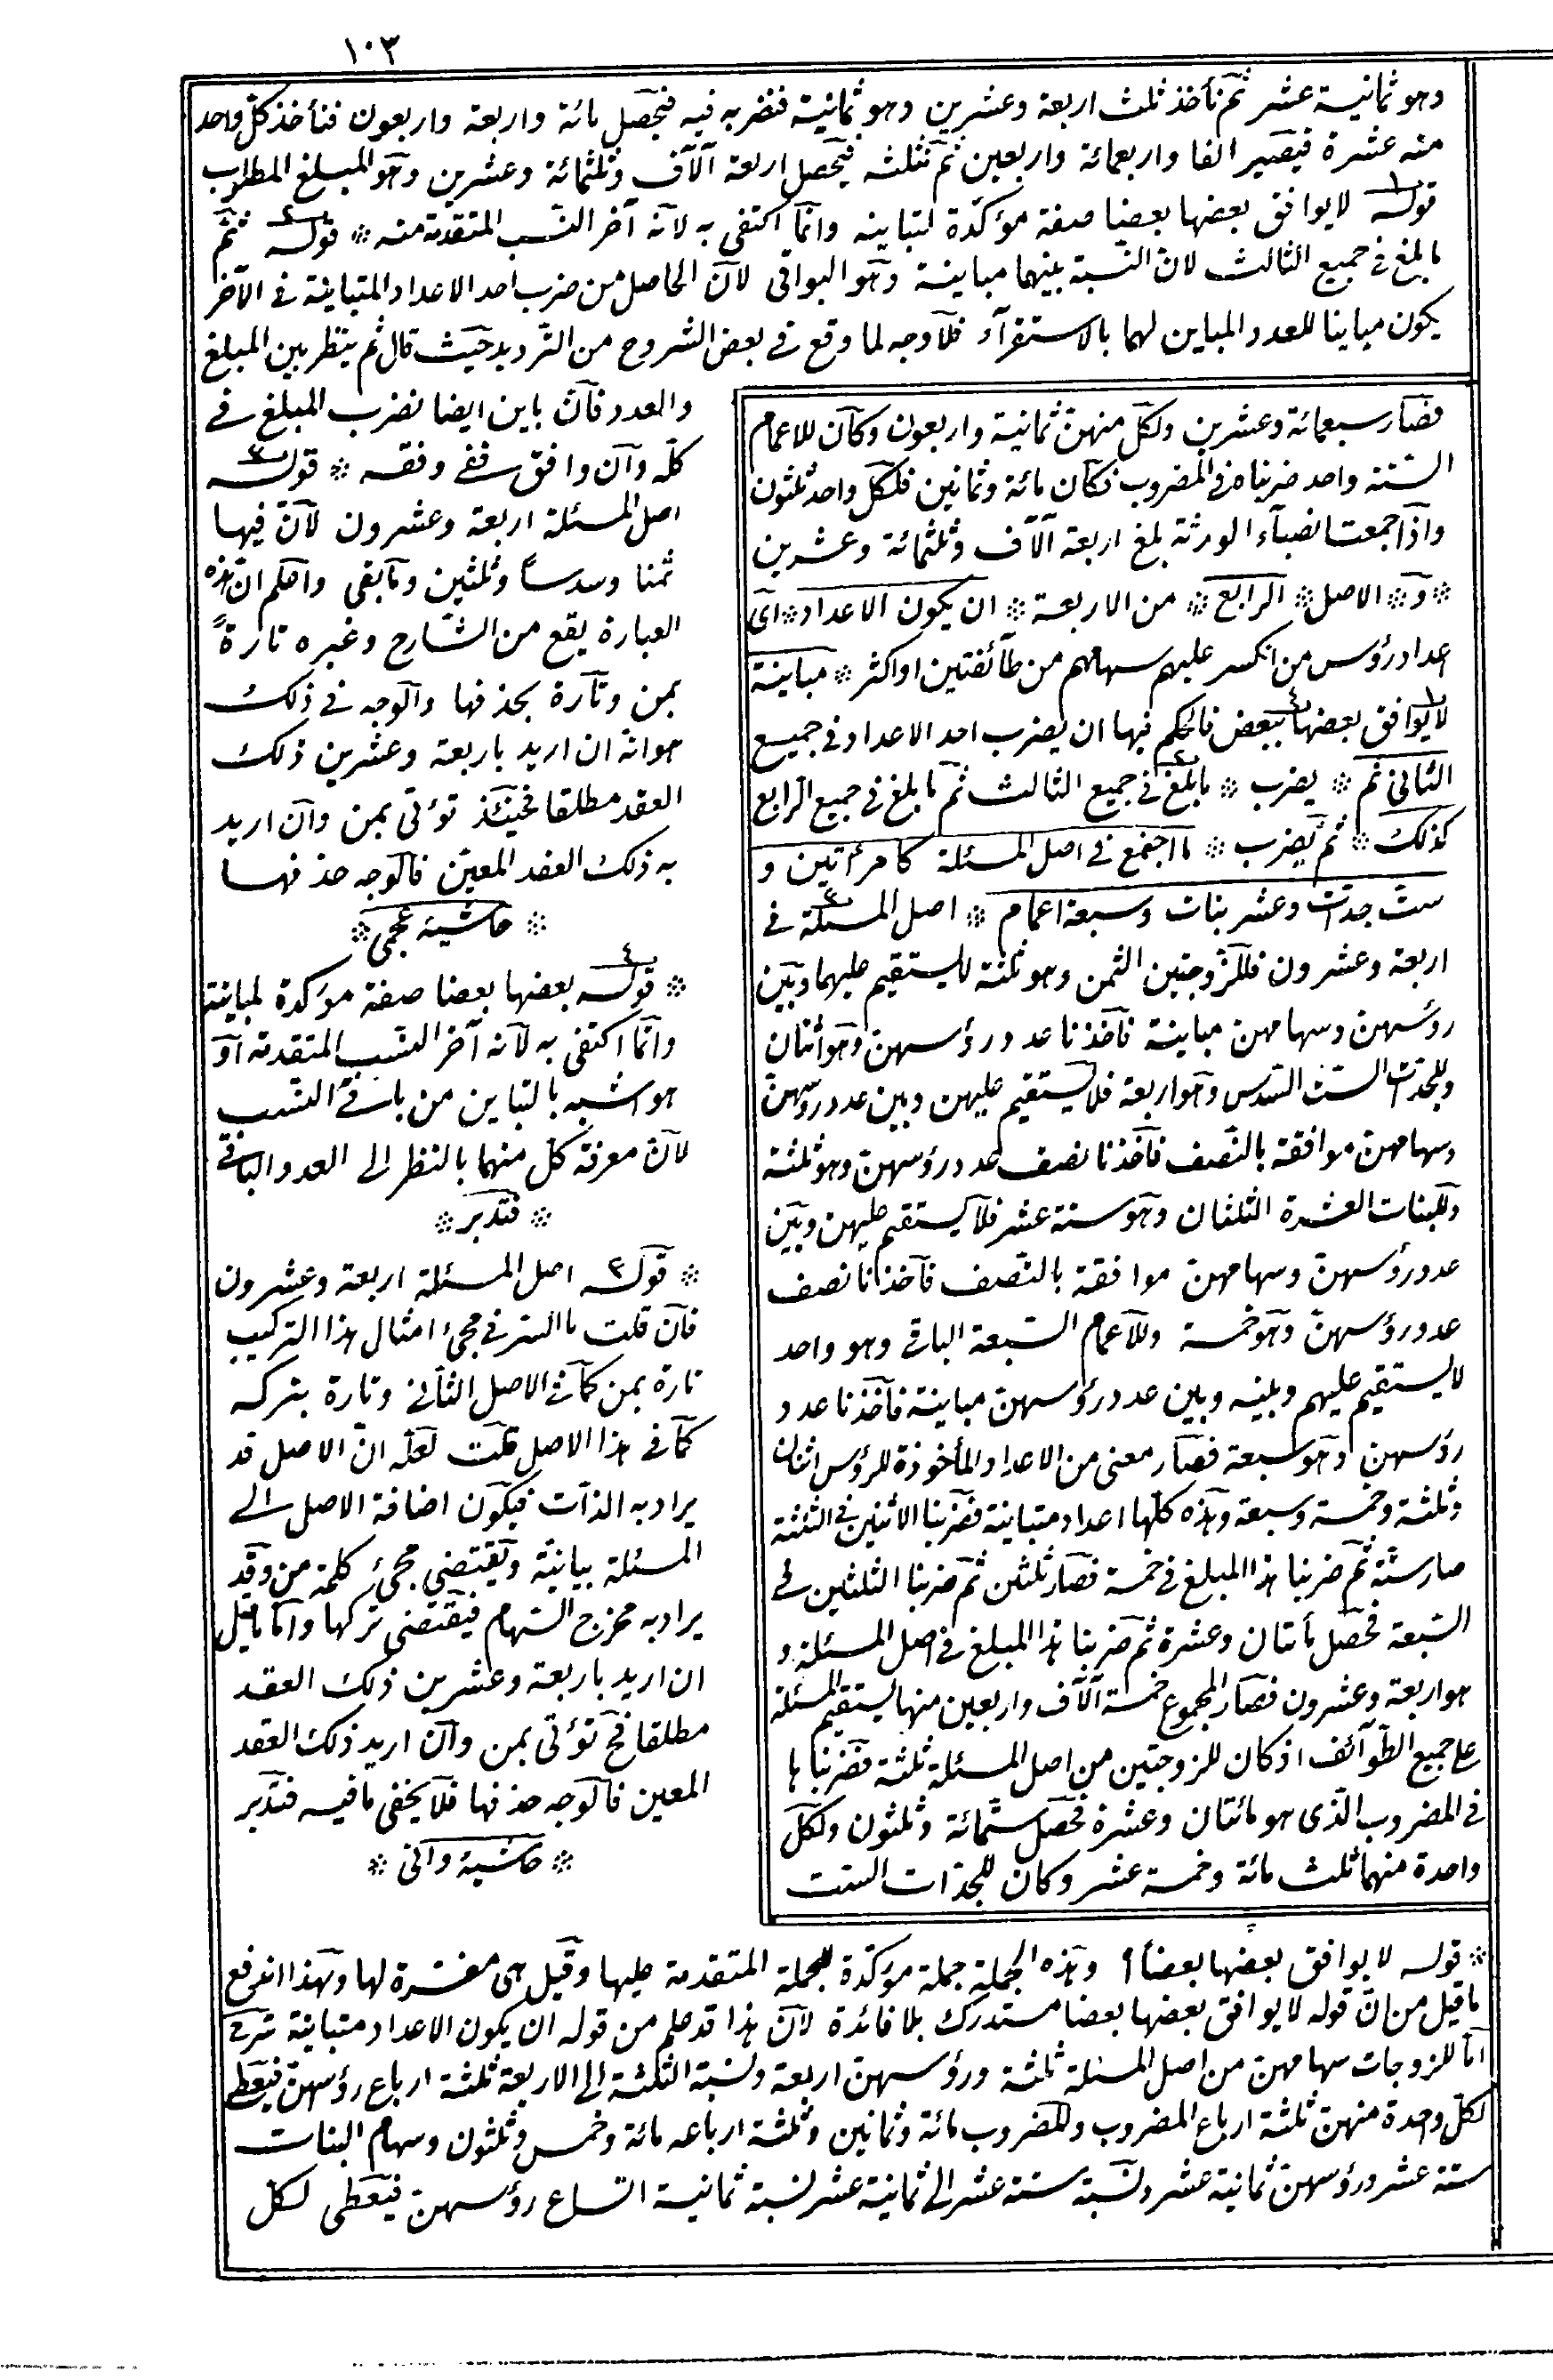 ١٠٣
وهو ثمانية عشر ثم نأخذ ثلث اربعة وعشرين وهو ثمانية فنضربه فيه فيحصل مائة واربعة واربعون فنأخذ كل واحد
منه عشرة فيصير الفا واربعمائة واربعين ثم نثلثه فيحصل اربعة آلآف وثلثمائة وعشرين وهو المبلغ المطلوب
قوله ١ لا يوافق بعضها بعضا صفة مؤكدة لتباينه وانما اكتفى به لانه آخر النسب المتقدمة منه ※ قوله ٢ ثم
ما بلغ فى جميع الثالث لان النسبة بينهما مباينة وهو البواقى لان الحاصل من ضرب احد الاعداد المتباينة فى الآخر
يكون مباينا للعدد المباين لهما بالاستقرآء فلا وجه لما وقع فى بعض الشروح من الترديد حيث قال ثم ينظر بين المبلغ
فصار سبعمائة وعشرين ولكل منهن ثمانية واربعون وكان للاعمام
الستة واحد ضربناه فى المضروب فكان مائة وثمانين فلكل واحد ثلثون
واذا جمعت انصبآء الورثة بلغ اربعة آلآف وثلثمائة وعشرين
※ و ※ الاصل ※ الرابع ※ من الاربعة ※ ان يكون الاعداد ※ اى
اعداد رؤس من انكسر عليهم سهامهم من طآئفتين او اكثر ※ مباينة
لا يوافق بعضها ببعض فالحكم فيها ان يضرب احد الاعداد فى جميع
الثانى ثم ※ يضرب ※ ما بلغ فى جميع الثالث ثم ما بلغ فى جميع الرابع
كذلك ※ ثم يضرب ※ ما اجتمع فى اصل المسئلة كامرأتين و
ست جدات وعشر بنات وسبعة اعمام ※ اصل المسئلة فى
اربعة وعشرون فللزوجتين الثمن وهو ثلثة لا يستقيم عليهما وبين
رؤسهن وسهامهن مباينة فاخذنا عدد رؤسهن وهو اثنان
وللجدات الست السدس وهو اربعة فلا يستقيم عليهن وبين عدد رؤسهن
وسهامهن موافقة بالنصف فاخذنا نصف عدد رؤسهن وهو ثلثة
وللبنات العشرة الثلثان وهو ستة عشر فلا يستقيم عليهن وبين
عدد رؤسهن وسهامهن موافقة بالنصف فاخذنا نصف
عدد رؤسهن وهو خمسة وللاعمام السبعة الباقى وهو واحد
لا يستقيم عليهم وبينه وبين عدد رؤسهن مباينة فاخذنا عدد
رؤسهن وهو سبعة فصار معنى من الاعداد المأخوذة للرؤس اثنان
وثلثة وخمسة وسبعة وهذه كلها اعداد متباينة فضربنا الاثنين فى الثلثة
صار ستة ثم ضربنا هذا المبلغ فى خمسة فصار ثلثين ثم ضربنا الثلثين فى
السبعة فحصل مأتان وعشرة ثم ضربنا هذا المبلغ فى اصل المسئلة و
هو اربعة وعشرون فصار المجموع خمسة آلآف واربعين منها يستقيم المسئلة
على جميع الطوآئف اذ كان للزوجتين من اصل المسئلة ثلثة فضربناها
فى المضروب الذى هو مائتان وعشرة فحصل ستمائة وثلثون ولكل
واحدة منهما ثلث مائة وخمسة عشر وكان للجدات الست
والعدد فان باين ايضا نضرب المبلغ فى
كله وان وافق ففى وفقه ※ قوله ٣
اصل المسئلة اربعة وعشرون لان فيها
ثمنا وسدسا وثلثين ومابقى واعلم ان هذه
العبارة يقع من الشارح وغيره تارة
بمن وتارة بحذفها والوجه فى ذلك
هو انه ان اريد باربعة وعشرين ذلك
العقد مطلقا فحينئذ تؤتى بمن وان اريد
به ذلك العقد المعين فالوجه حذفها
※ حاشيۀ عجمى ※
※ قوله ٤ بعضها بعضا صفة مؤكدة لمباينة
وانما اكتفى به لانه آخر النسب المتقدمة او
هو اشبه بالتباين من باقى النسب
لان معرفة كل منهما بالنظر الى العدد الباقى
※ فتدبر ※
※ قوله ٣ اصل المسئلة اربعة وعشرون
فان قلت ما السر فى مجئ امثال هذا التركيب
تارة بمن كما فى الاصل الثانى وتارة بتركه
كما فى هذا الاصل قلت لعله ان الاصل قد
يراد به الذات فيكون اضافة الاصل الى
المسئلة بيانية ويقتضى مجئ كلمة من وقد
يراد به مخرج السهام فيقتضى تركها واما ما قيل
ان اريد باربعة وعشرين ذلك العقد
مطلقا فح تؤتى بمن وان اريد ذلك العقد
المعين فالوجه حذفها فلا يخفى ما فيه فتدبر
※ حاشيۀ وانى ※
※ قوله لا يوافق بعضها بعضا وهذه الجملة جملة مؤكدة للجملة المتقدمة عليها وقيل هى مفسرة لها وبهذا اندفع
ما قيل من ان قوله لا يوافق بعضها بعضا مستدرك بلا فائدة لان هذا قد علم من قوله ان يكون الاعداد متباينة شرح
اما للزوجات سهامهن من اصل المسئلة ثلثة ورؤسهن اربعة ونسبة الثلثة الى الاربعة ثلثة ارباع رؤسهن فيعطى
لكل واحدة منهن ثلثة ارباع المضروب والمضروب مائة وثمانين وثلثة ارباعه مائة وخمس وثلثون وسهام البنات
ستة عشر ورؤسهن ثمانية عشر ونسبة ستة عشر الى ثمانية عشر نسبة ثمانية اتساع رؤسهن فيعطى لكل